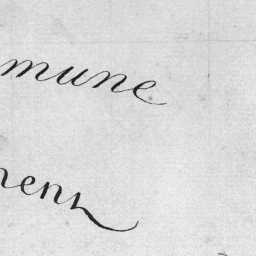 mune
nent